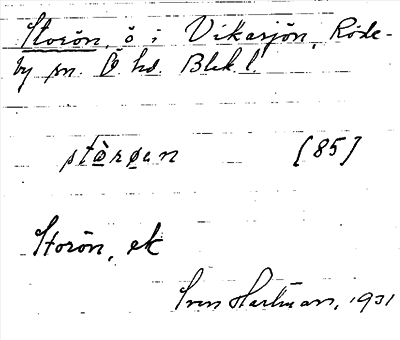 Storön, ö i Vikasjön, Röde-
by sn. Ö hd. Blek. l.
stòrøan [85]
Storön, ek
Sven Hartman, 1931